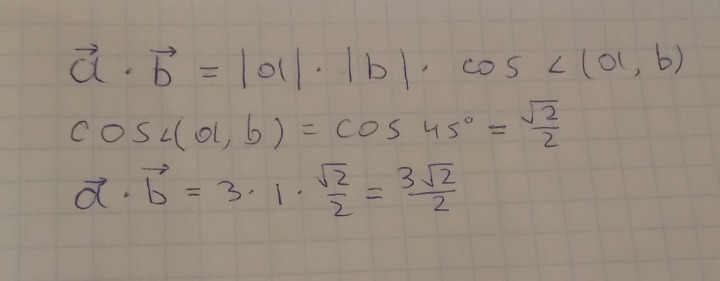 a⃗ · b⃗ = |a| · |b| · cos ∠(a, b)
cos∠(a, b) = cos 45° = √2/2
a⃗ · b⃗ = 3 · 1 · √2/2 = 3√2/2